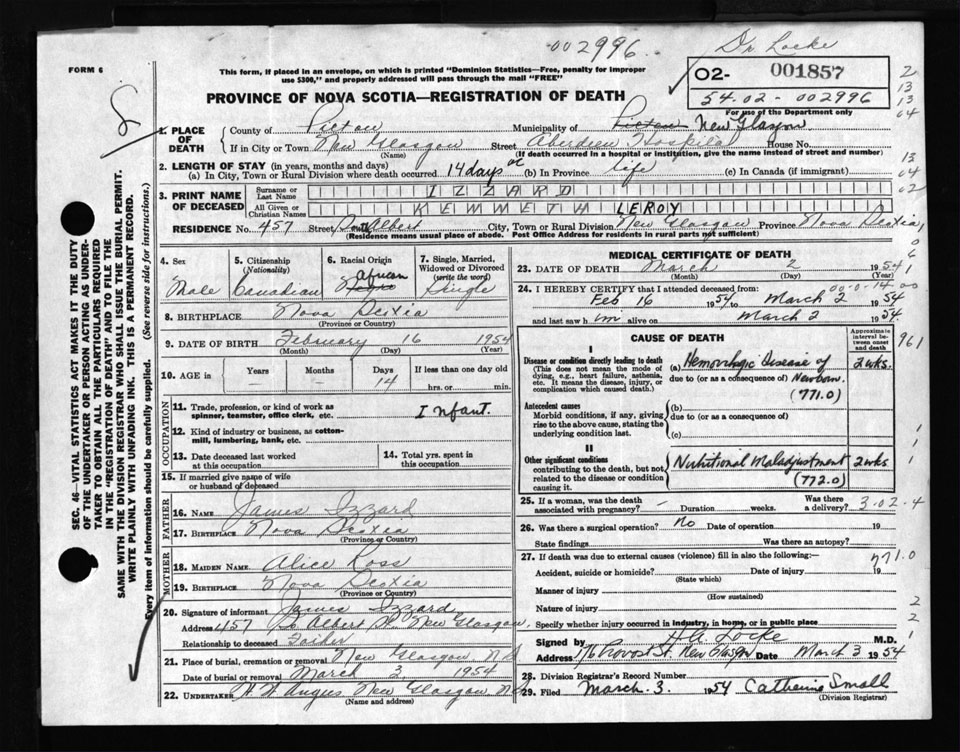 002996.
Dr Locke
FORM 6
This form, if placed in an envelope, on which is printed "Dominion Statistics—Free, penalty for improper
use $300," and properly addressed will pass through the mail "FREE"
02- 001857
54-02-002996
For use of the Department only
PROVINCE OF NOVA SCOTIA—REGISTRATION OF DEATH
1. PLACE OF DEATH
County of Pictou Municipality of Pictou New Glasgow
If in City or Town New Glasgow Street Aberdeen Hospital House No.
(Name) (If death occurred in a hospital or institution, give the name instead of street and number)
2. LENGTH OF STAY (in years, months and days)
(a) In City, Town or Rural Division where death occurred 14 days or (b) In Province life (c) In Canada (if immigrant)
3. PRINT NAME OF DECEASED
Surname or Last Name IZZARD
All Given or Christian Names KENNETH LEROY
RESIDENCE No. 457 Street South Albert City, Town or Rural Division New Glasgow Province Nova Scotia
(Residence means usual place of abode. Post Office Address for residents in rural parts not sufficient)
4. Sex Male
5. Citizenship (Nationality) Canadian
6. Racial Origin African
7. Single, Married, Widowed or Divorced (write the word) Single
8. BIRTHPLACE Nova Scotia
(Province or Country)
9. DATE OF BIRTH February 16 1954
(Month) (Day) (Year)
10. AGE is Years Months Days If less than one day
- 14 hrs. or min.
OCCUPATION
11. Trade, profession, or kind of work as spinner, teamster, office clerk, etc. Infant.
12. Kind of industry or business, as cotton-mill, lumbering, bank, etc.
13. Date deceased last worked at this occupation
14. Total yrs. spent in this occupation
15. If married give name of wife or husband of deceased
FATHER
16. NAME James Izzard
17. BIRTHPLACE Nova Scotia
(Province or Country)
MOTHER
18. MAIDEN NAME Alice Ross
19. BIRTHPLACE Nova Scotia
(Province or Country)
20. Signature of informant James Izzard
Address 457 So Albert St. New Glasgow,
Relationship to deceased Father
21. Place of burial, cremation or removal New Glasgow N.S.
Date of burial or removal March 3 1954
22. UNDERTAKER H W Angus New Glasgow, N.S.
(Name and address)
MEDICAL CERTIFICATE OF DEATH
23. DATE OF DEATH March 2 1954
(Month) (Day) (Year)
24. I HEREBY CERTIFY that I attended deceased from: 00-0-14-00
Feb 16 1954 to March 2 1954
and last saw him alive on March 2 1954.
CAUSE OF DEATH
Approximate interval between onset and death
I
Disease or condition directly leading to death
(This does not mean the mode of dying, e.g., heart failure, asthenia, etc. It means the disease, injury, or complication which caused death.)
(a) Hemorrhagic Disease of 2 wks.
due to (or as a consequence of) Newborn.
(771.0)
Antecedent causes
Morbid conditions, if any, giving rise to the above cause, stating the underlying condition last.
(b)
due to (or as a consequence of)
(c)
II
Other significant conditions
contributing to the death, but not related to the disease or condition causing it.
Nutritional Maladjustment 2 wks
(772.0)
25. If a woman, was the death associated with pregnancy? - Duration weeks. Was there a delivery? 3-02-4
26. Was there a surgical operation? No Date of operation 19
State findings Was there an autopsy?
27. If death was due to external causes (violence) fill in also the following:— 771.0
Accident, suicide or homicide? Date of injury 19
(State which)
Manner of injury
(How sustained)
Nature of injury
Specify whether injury occurred in industry, in home, or in public place
Signed by H A Locke M.D.
Address 176 Provost St. New Glasgow Date March 3 1954
28. Division Registrar's Record Number
29. Filed March. 3. 1954 Catherine Small
(Division Registrar)
SEC. 46—VITAL STATISTICS ACT MAKES IT THE DUTY
OF THE UNDERTAKER OR PERSON ACTING AS UNDER-
TAKER TO OBTAIN ALL THE PARTICULARS REQUIRED
IN THE "REGISTRATION OF DEATH" AND TO FILE THE
SAME WITH THE DIVISION REGISTRAR WHO SHALL ISSUE THE BURIAL PERMIT.
WRITE PLAINLY WITH UNFADING INK. THIS IS A PERMANENT RECORD.
Every item of information should be carefully supplied. (See reverse side for instructions.)
2
13
13
04
13
04
02
961